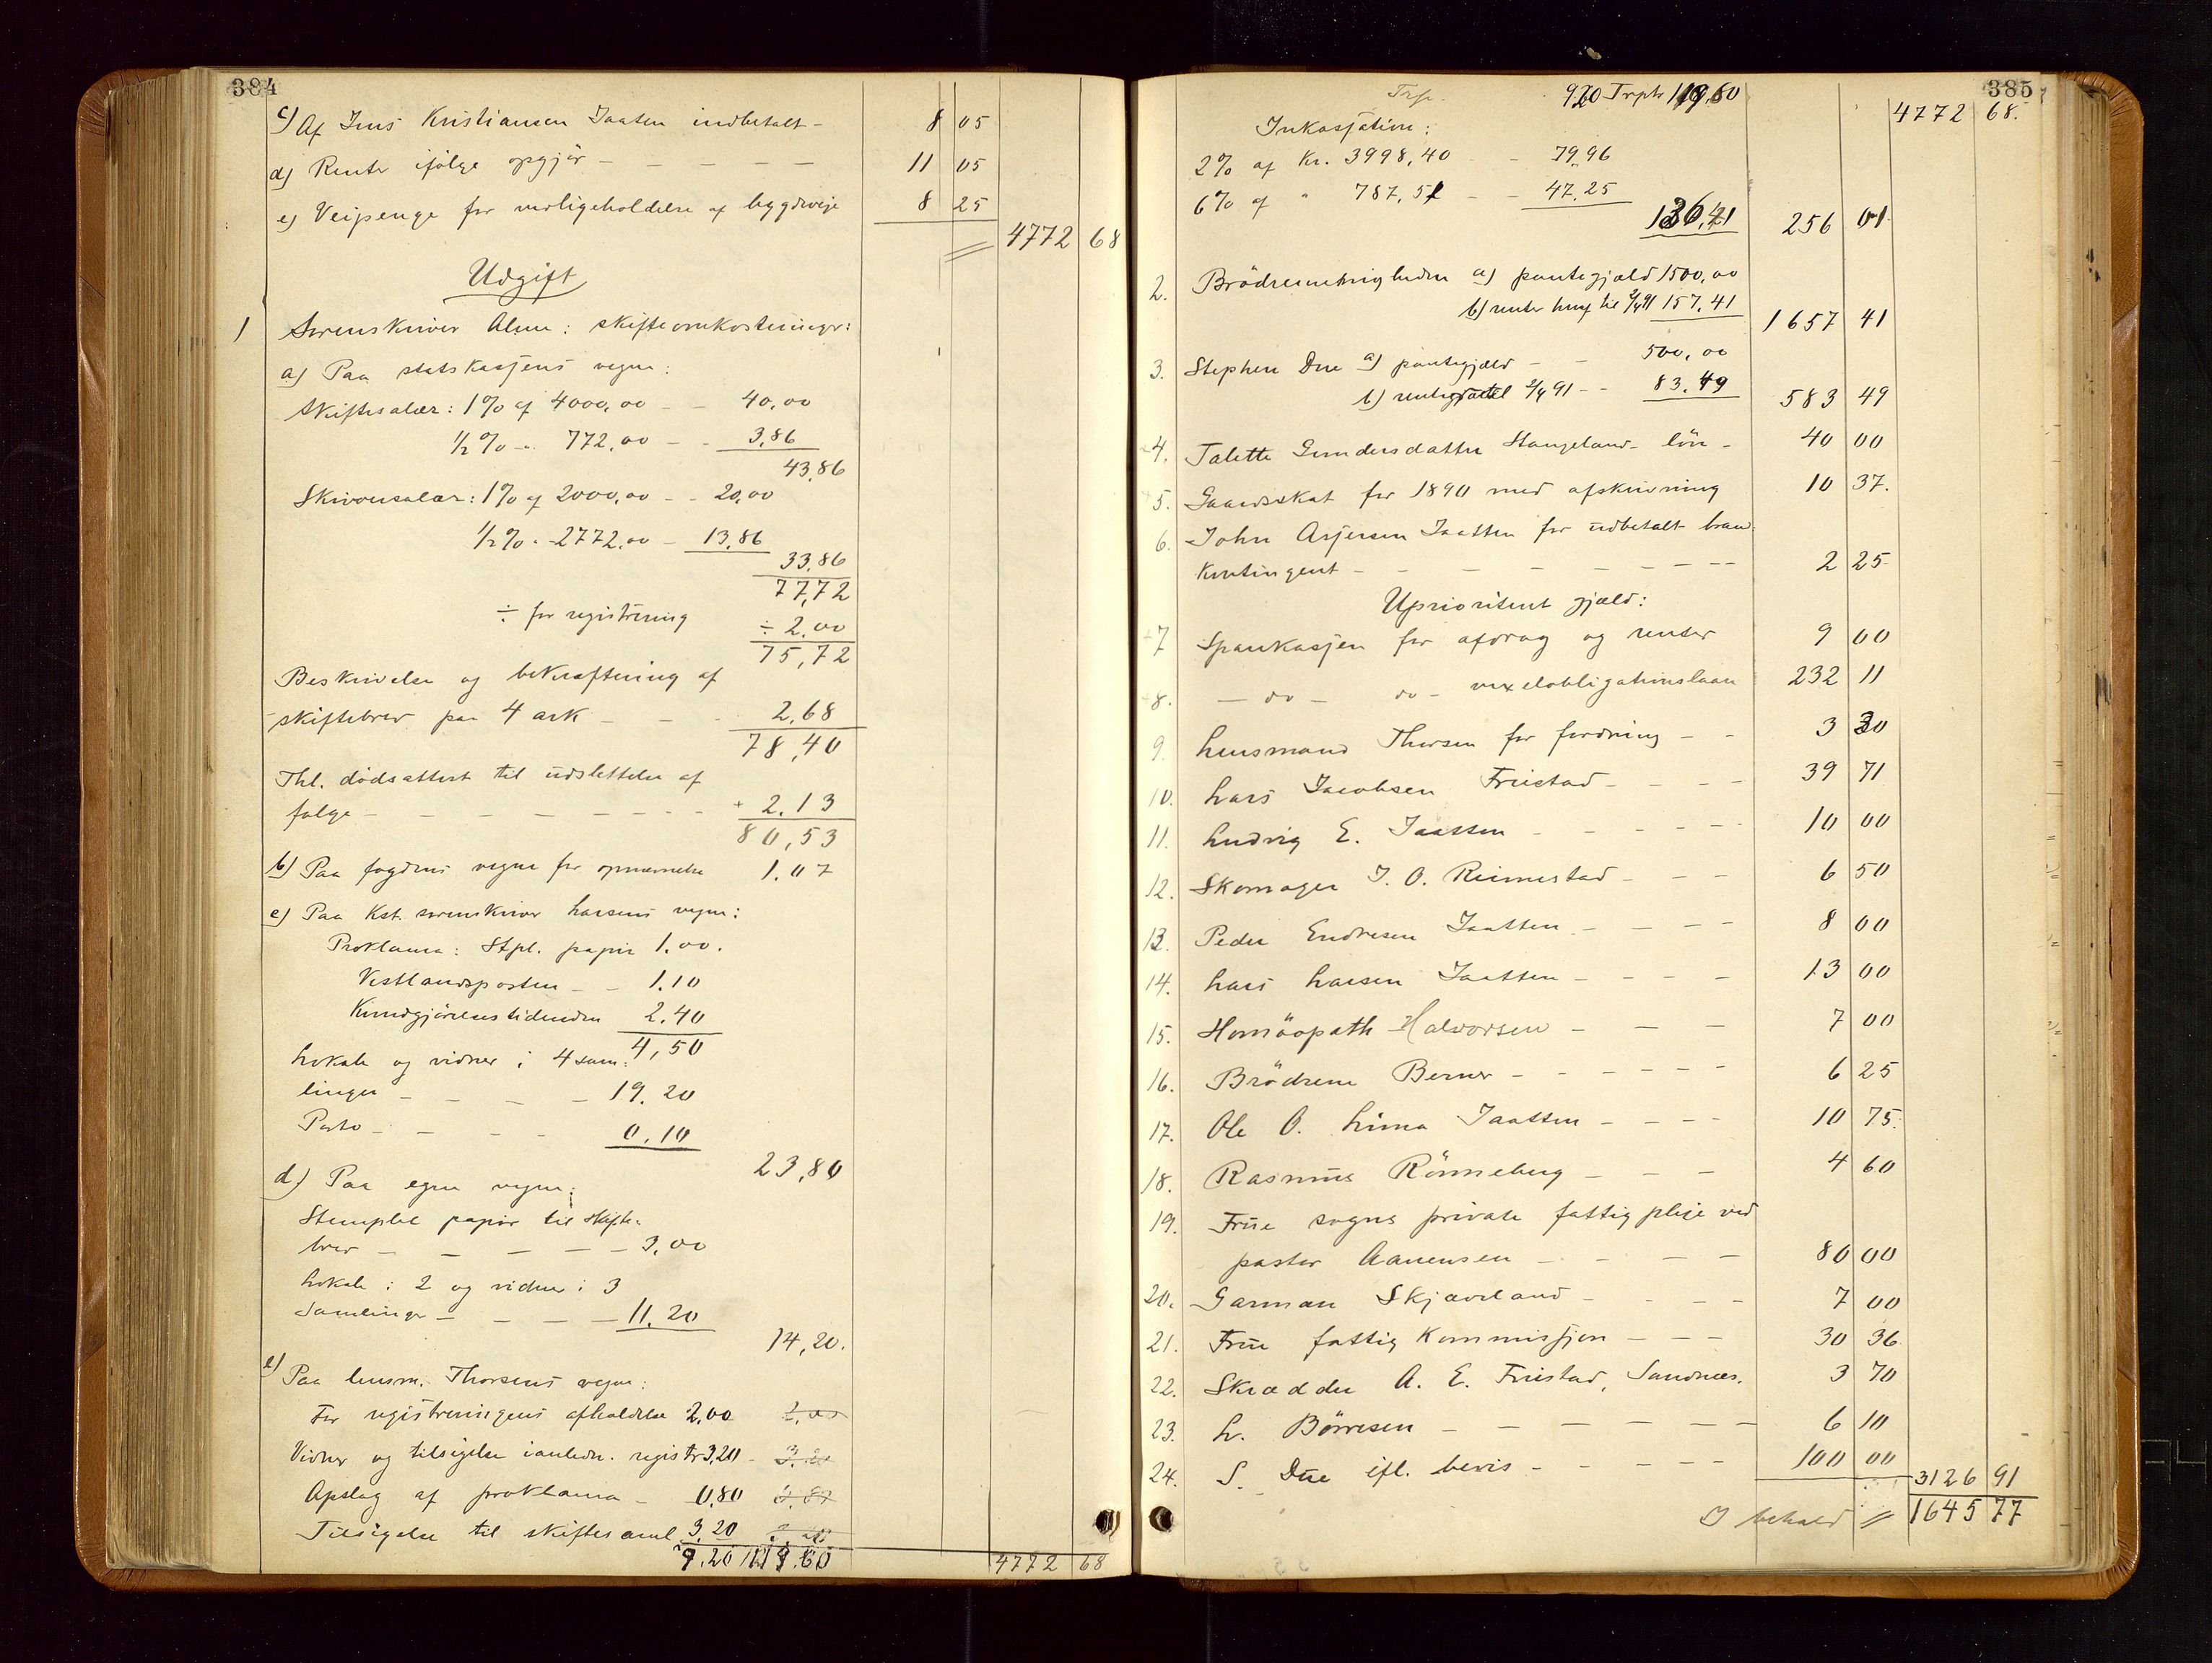 384
c) Af Jens Kristiansen Jaaten indbetalt - 8 05
d) Renter ifølge opgjør - - - - - 11 05
e) Veipenge for vedligeholdelse af bygdeveje 8 25
4772 68
Udgift
1 Sorenskriver Alme: skifteomkostninger:
a) Paa statskassens vegne:
Skiftesalær: 1% af 4000,00 - - 40,00
1/2% - " 772,00 - - 3,86
43,86
Skriversalær: 1% af 2000,00 - - 20,00
1/2% " - 2772,00 - 13,86
33,86
77,72
÷ for registrering ÷ 2,00
75,72
Beskrivelse og bekræftning af
skiftebrev paa 4 ark - - - 2,68
78,40
Thl. dødsattest til udslettelse af
følge - - - - - - - - + 2.13
80,53
b) Paa fogdens vegne for opnævnelse 1.07
c) Paa Kst. sorenskriver Larsens vegne:
Proklama: Stpl. papir 1.00.
Vestlandsposten - - 1.10
Kundgjørelsestidenden 2.40
4,50
Lokale og vidner i 4 sam-
linger - - - - 19.20
Porto - - - - 0.10
23,80
d) Paa egne vegne:
Stemplet papir til skifte-
brev - - - - - 3,00
Lokale i 2 og vidner i 3
Samlinger - - - - 11.20
14,20.
e) Paa lensm. Thorsens vegne:
For registreringens afholdelse 2,00 2,00
Vidner og tilsigelse i anledn. registr 3,20 - 3.20
Opslag af proklama - 0,80
Tilsigelse til skiftesaml. 3,20
9.20 119.60
4772 68
385
Trp. 9,20 Trpt 119,60
4772 68.
Inkassation:
2% af Kr. 3998,40 - 79,96
6% af " 787,51 - - 47.25
136,41 256 01
2. Brödremenigheden a) pantegjæld 1500,00
b) renter heraf til 2/4 91 157.41 1657 41
3. Stephen Due a) pantegjæld - - 500,00
b) renter til 2/4 91 - - 83.49 583 49
4. Talette Gundersdatter Stangeland - løn - 40 00
5. Gaardsskat for 1890 med afskrivning 10 37.
6. John Asjersen Jaatten for udbetalt brand-
Kontingent - - - - - - - - 2 25
Uprioriteret gjæld:
7 Sparekassen for afdrag og renter 9 00
8. - do - do - vexelobligationslaan 232 11
9. Lensmand Thorsen for fordring - - 3 30
10. Lars Jacobsen Fristad - - - - 39 71
11. Ludvig E. Jaatten - - - - - 10 00
12. Skomager J. O. Reimestad - - - 6 50
13. Peder Endresen Jaatten - - - - 8 00
14. Lars Larsen Jaatten - - - - 13 00
15. Homöopath Halvorsen - - - 7 00
16. Brödrene Berner - - - - - - 6 25
17. Ole O. Lima Jaatten - - - - 10 75.
18. Rasmus Rönneberg - - - 4 60
19. Frue sogns private fattigpleje ved
pastor Aanensen - - - - 80 00
20. Garman Skjæveland - - - - 7 00
21. Frue fattig Kommission - - - 30 36
22. Skrædder A. E. Fristad, Sandnæs. 3 70
23. L. Börresen - - - - - - 6 10
24. S. Due ifl. bevis - - - - - 100 00
3126 91
I behold 1645 77